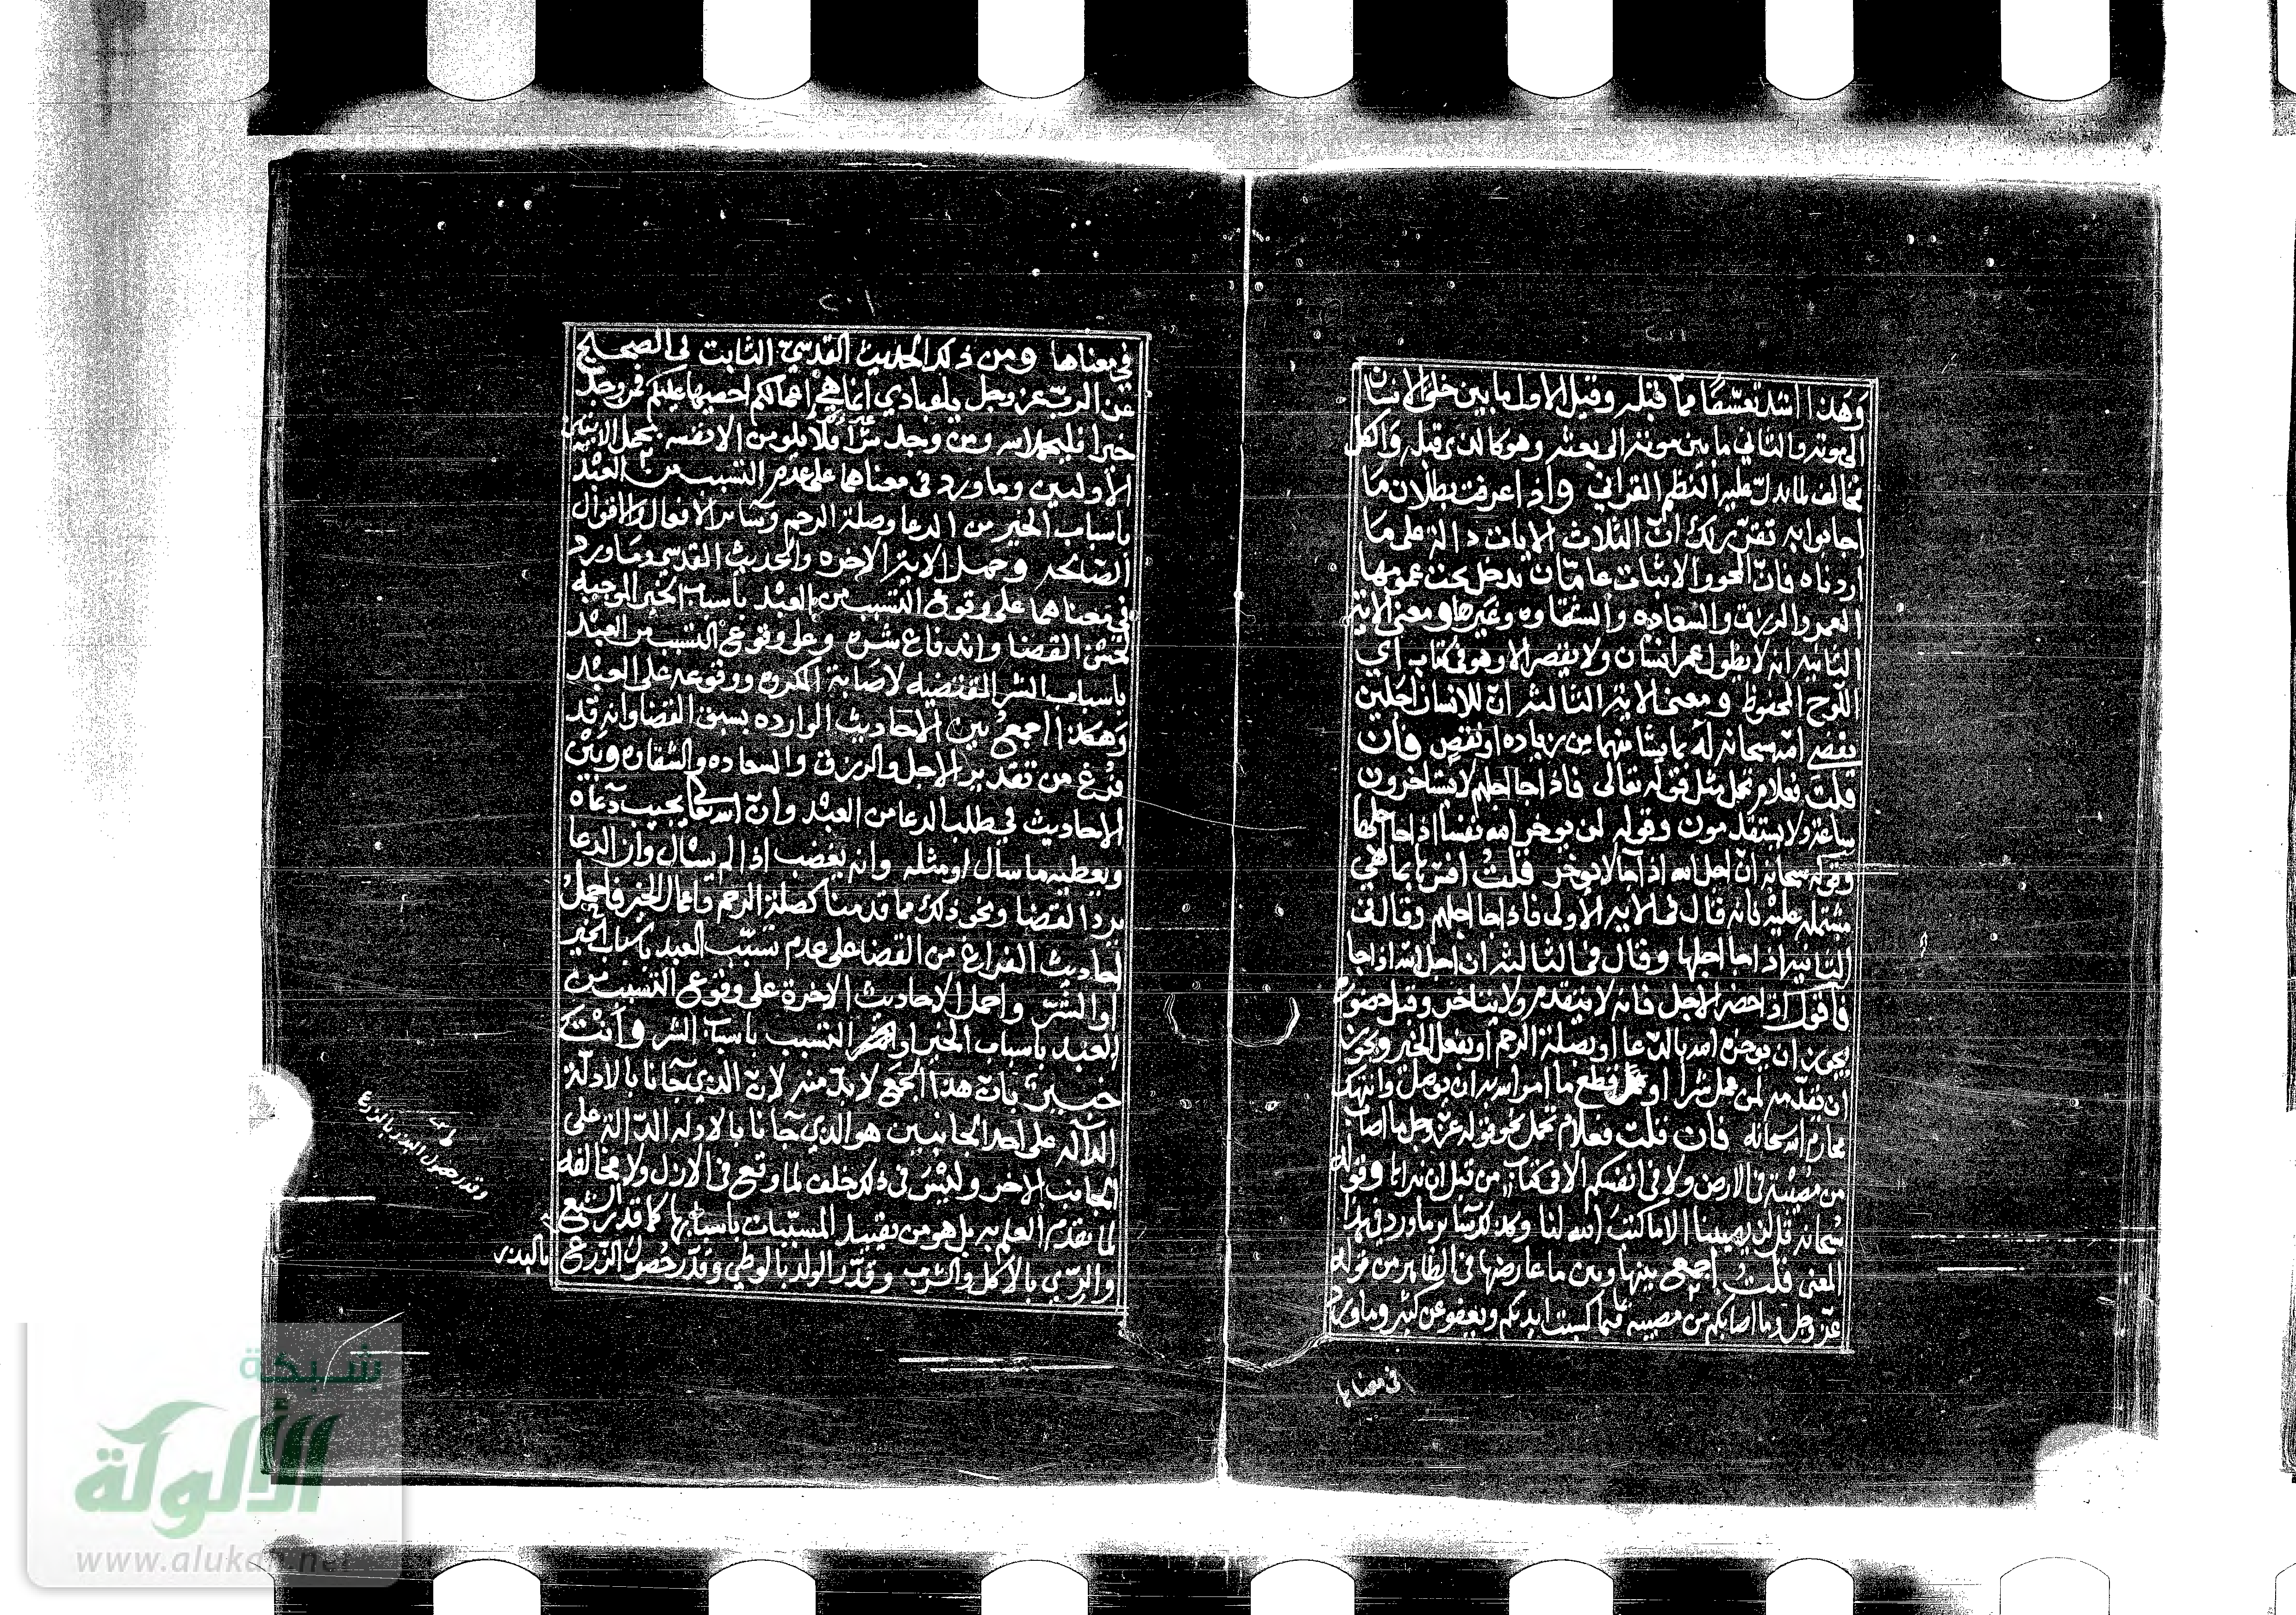 وهذا اشد تعسّفًا مما قبله وقيل الاول ما بين خلق الانسان
الى موته والثاني ما بين موته الى بعثه وهو كالذي قبله والكل
مخالف لما يدل عليه النظم القراني واذا عرفت بطلان ما
اجابوا به تقرّر لك انّ الثلاث الايات دالة على ما
اردناه فانّ المحو والاثبات عامّان يدخل تحت عمومهما
العمر والرزق والسعاده والشقاوه وغيرها ومعنى الايه
الثانيه انه لا يطول عمر انسان ولا يقصر الا وهو في كتاب اي
اللوح المحفوظ ومعنى الايه الثالثه انّ للانسان اجلين
يقضي الله سبحانه له بما يشا منهما من زياده او نقص فان
قلت فعلام تحمل مثل قوله تعالى فاذا جا اجلهم لا يستاخرون
ساعة ولا يستقدمون وقوله لن يوخر الله نفسا اذا جا اجلها
وقوله سبحانه انّ اجل الله اذا جا لا يوخر قلت اقيّدها بما هي
مشتمله عليه فانه قال في الايه الاولى فاذا جا اجلهم وقال في
الثانيه اذا جا اجلها وقال في الثالثه ان اجل الله اذا جا
فاقول اذا حضر الاجل فانه لا يتقدم ولا يتاخر وقبل حضوره
يجوز ان يوخره الله بالدّعا او بصلة الرحم او بفعل الخير ويجوز
ان يقدّمه لمن عمل شرا او قطع ما امر الله به ان يوصل وانتهك
محارم الله سبحانه فان قلت فعلام تحمل نحو قوله عز وجل ما اصاب
من مصيبة في الارض ولا في انفسكم الا في كتاب من قبل ان نبراها وقوله
سبحانه قل لن يصيبنا الا ما كتب الله لنا وكذلك سائر ما ورد في هذا
المعنى قلت اجمع بينها وبين ما عارضها في الظاهر من قوله
عز وجل وما اصابكم من مصيبه فبما كسبت ايديكم ويعفو عن كثير وما ورد
في معناها
في معناها ومن ذلك الحديث القدسي الثابت في الصحيح
عن الرب عز وجل يا عبادي انما هي اعمالكم احصيها عليكم فمن وجد
خيرا فليحمد الله ومن وجد شرّا فلا يلومن الا نفسه بحمل الايتين
الأوليين وما ورد في معناهما على عدم التسبب من العبد
باسباب الخير من الدعا وصلة الرحم وسائر الافعال والاقوال
الصالحه وحمل الايه الاخره والحديث القدسي وما ورد
في معناهما على وقوع التسبب من العبد باسباب الخير الموجبه
لحسن القضا واندفاع شره وعلى وقوع التسبب من العبد
باسباب الشر المقتضيه لاصابة المكروه ووقوعه على العبد
وهكذا اجمع بين الاحاديث الوارده بسبق القضا وانه قد
فرغ من تقدير الاجل والرزق والسعاده والشقاوه وبين
الاحاديث في طلب الدعا من العبد وانّ الله تعالى يجيب دعاه
ويعطيه ما سال او مثله وانه يغضب اذا لم يسال وان الدعا
يرد القضا ونحو ذلك مما قدمنا كصلة الرحم واعمال الخير فاحمل
احاديث الفراغ من القضا على عدم تسبّب العبد باسباب الخير
او الشّر واحمل الاحاديث الاخرة على وقوع التسبب من
العبد باسباب الخير او التسبب باسباب الشر وانت
خبير بان هذا الجمع لا بدّ منه لانّ الذي جانا بالادلة
الدالّه على احد الجانبين هو الذي جانا بالادله الدالة على
الجانب الاخر وليس في ذلك خلف لما وقع في الازل ولا مخالفه
لما تقدم العلم به بل هو من تقييد المسبّبات باسبابها كما قدر الشبع
والرّي بالاكل والشرب وقدّر الولد بالوطي وقدّر حصول الزرع
بالبذر
وقدر حصول البذر بالزرع
شبكة
الألوكة
www.alukah.net